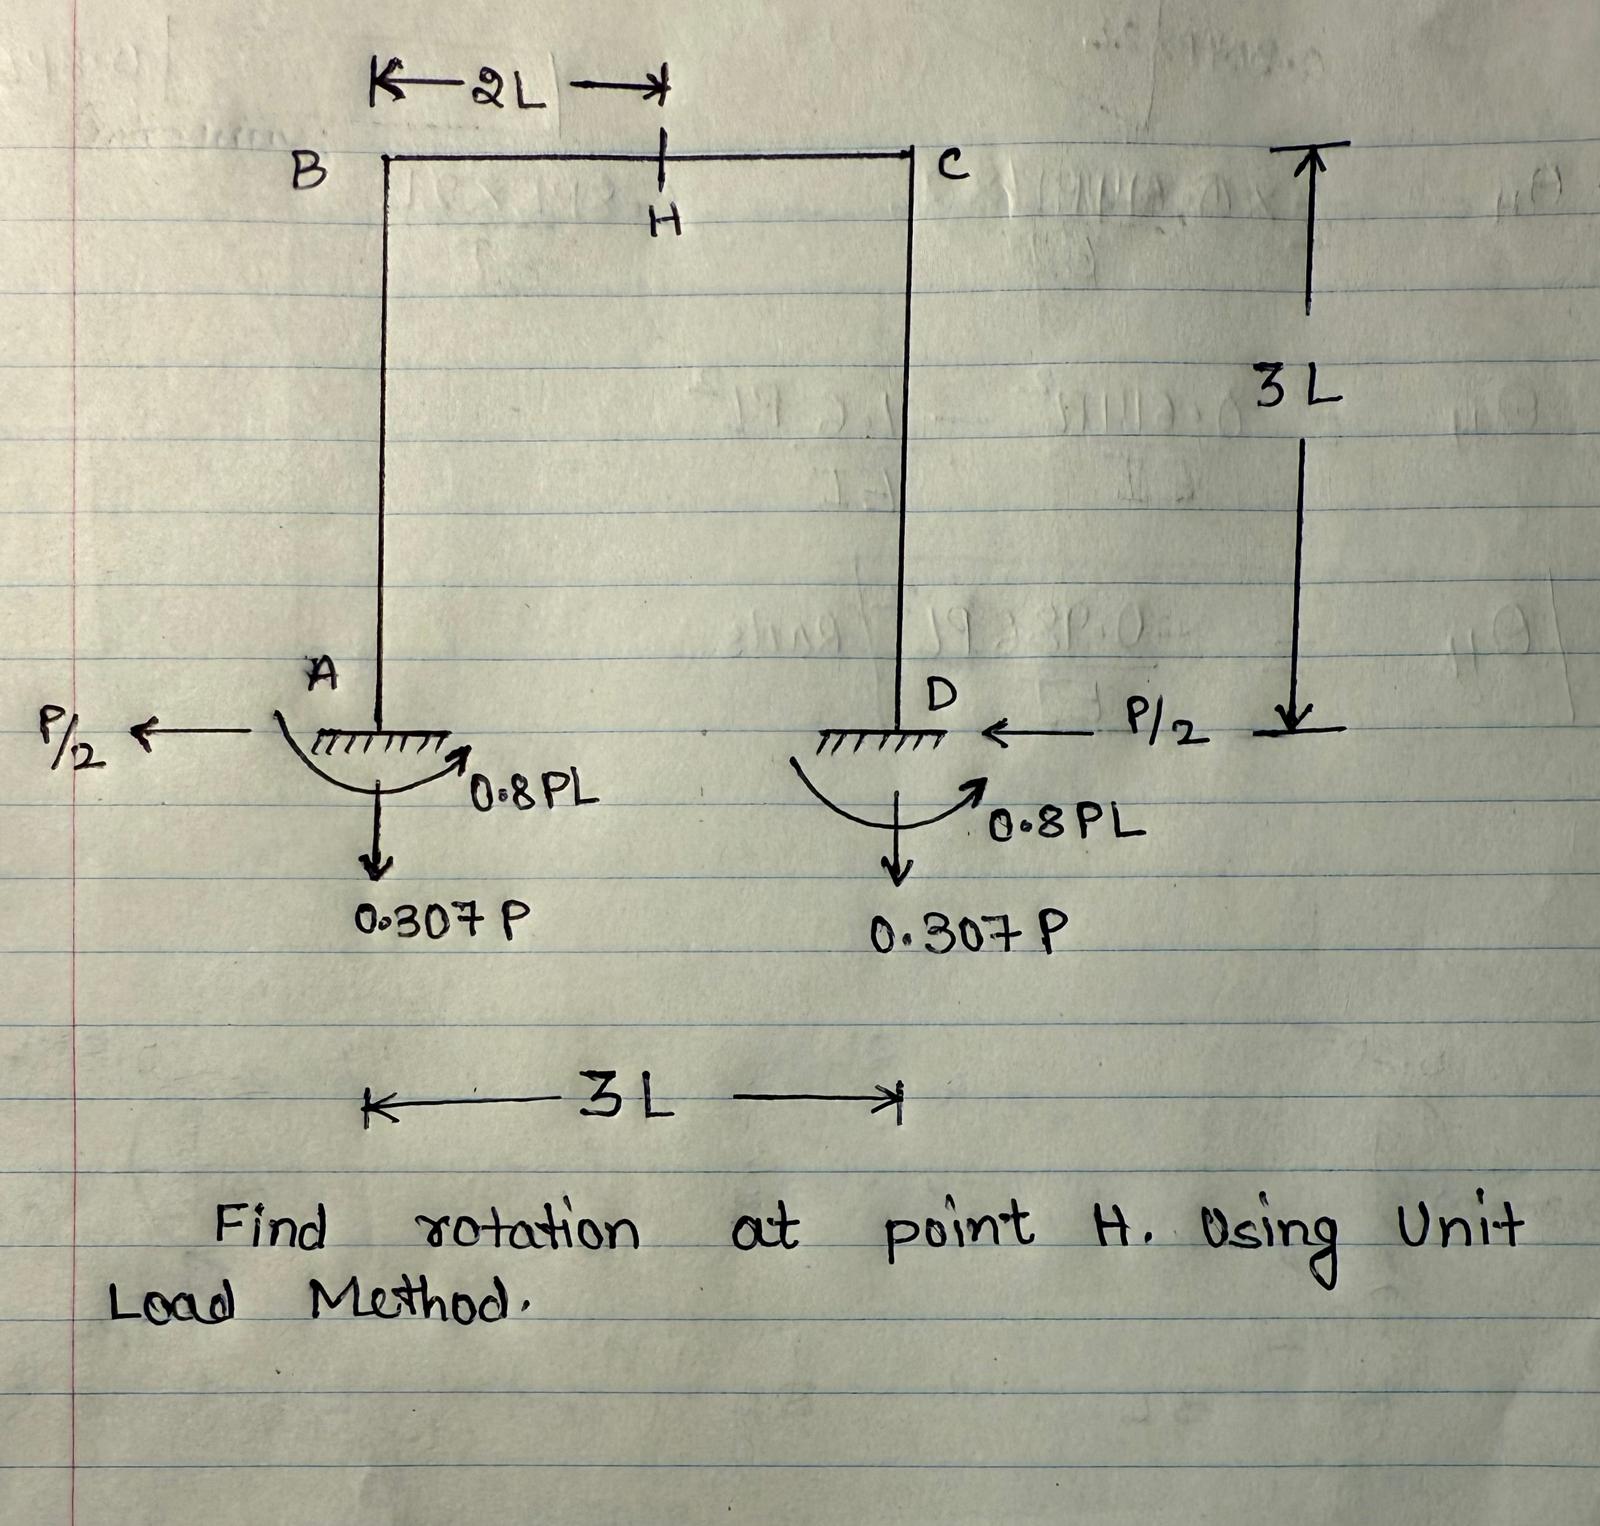 2L
B
C
H
3L
A
D
P/2
P/2
0.8PL
0.8PL
0.307 P
0.307 P
3L
Find rotation at point H. Using Unit
Load Method.